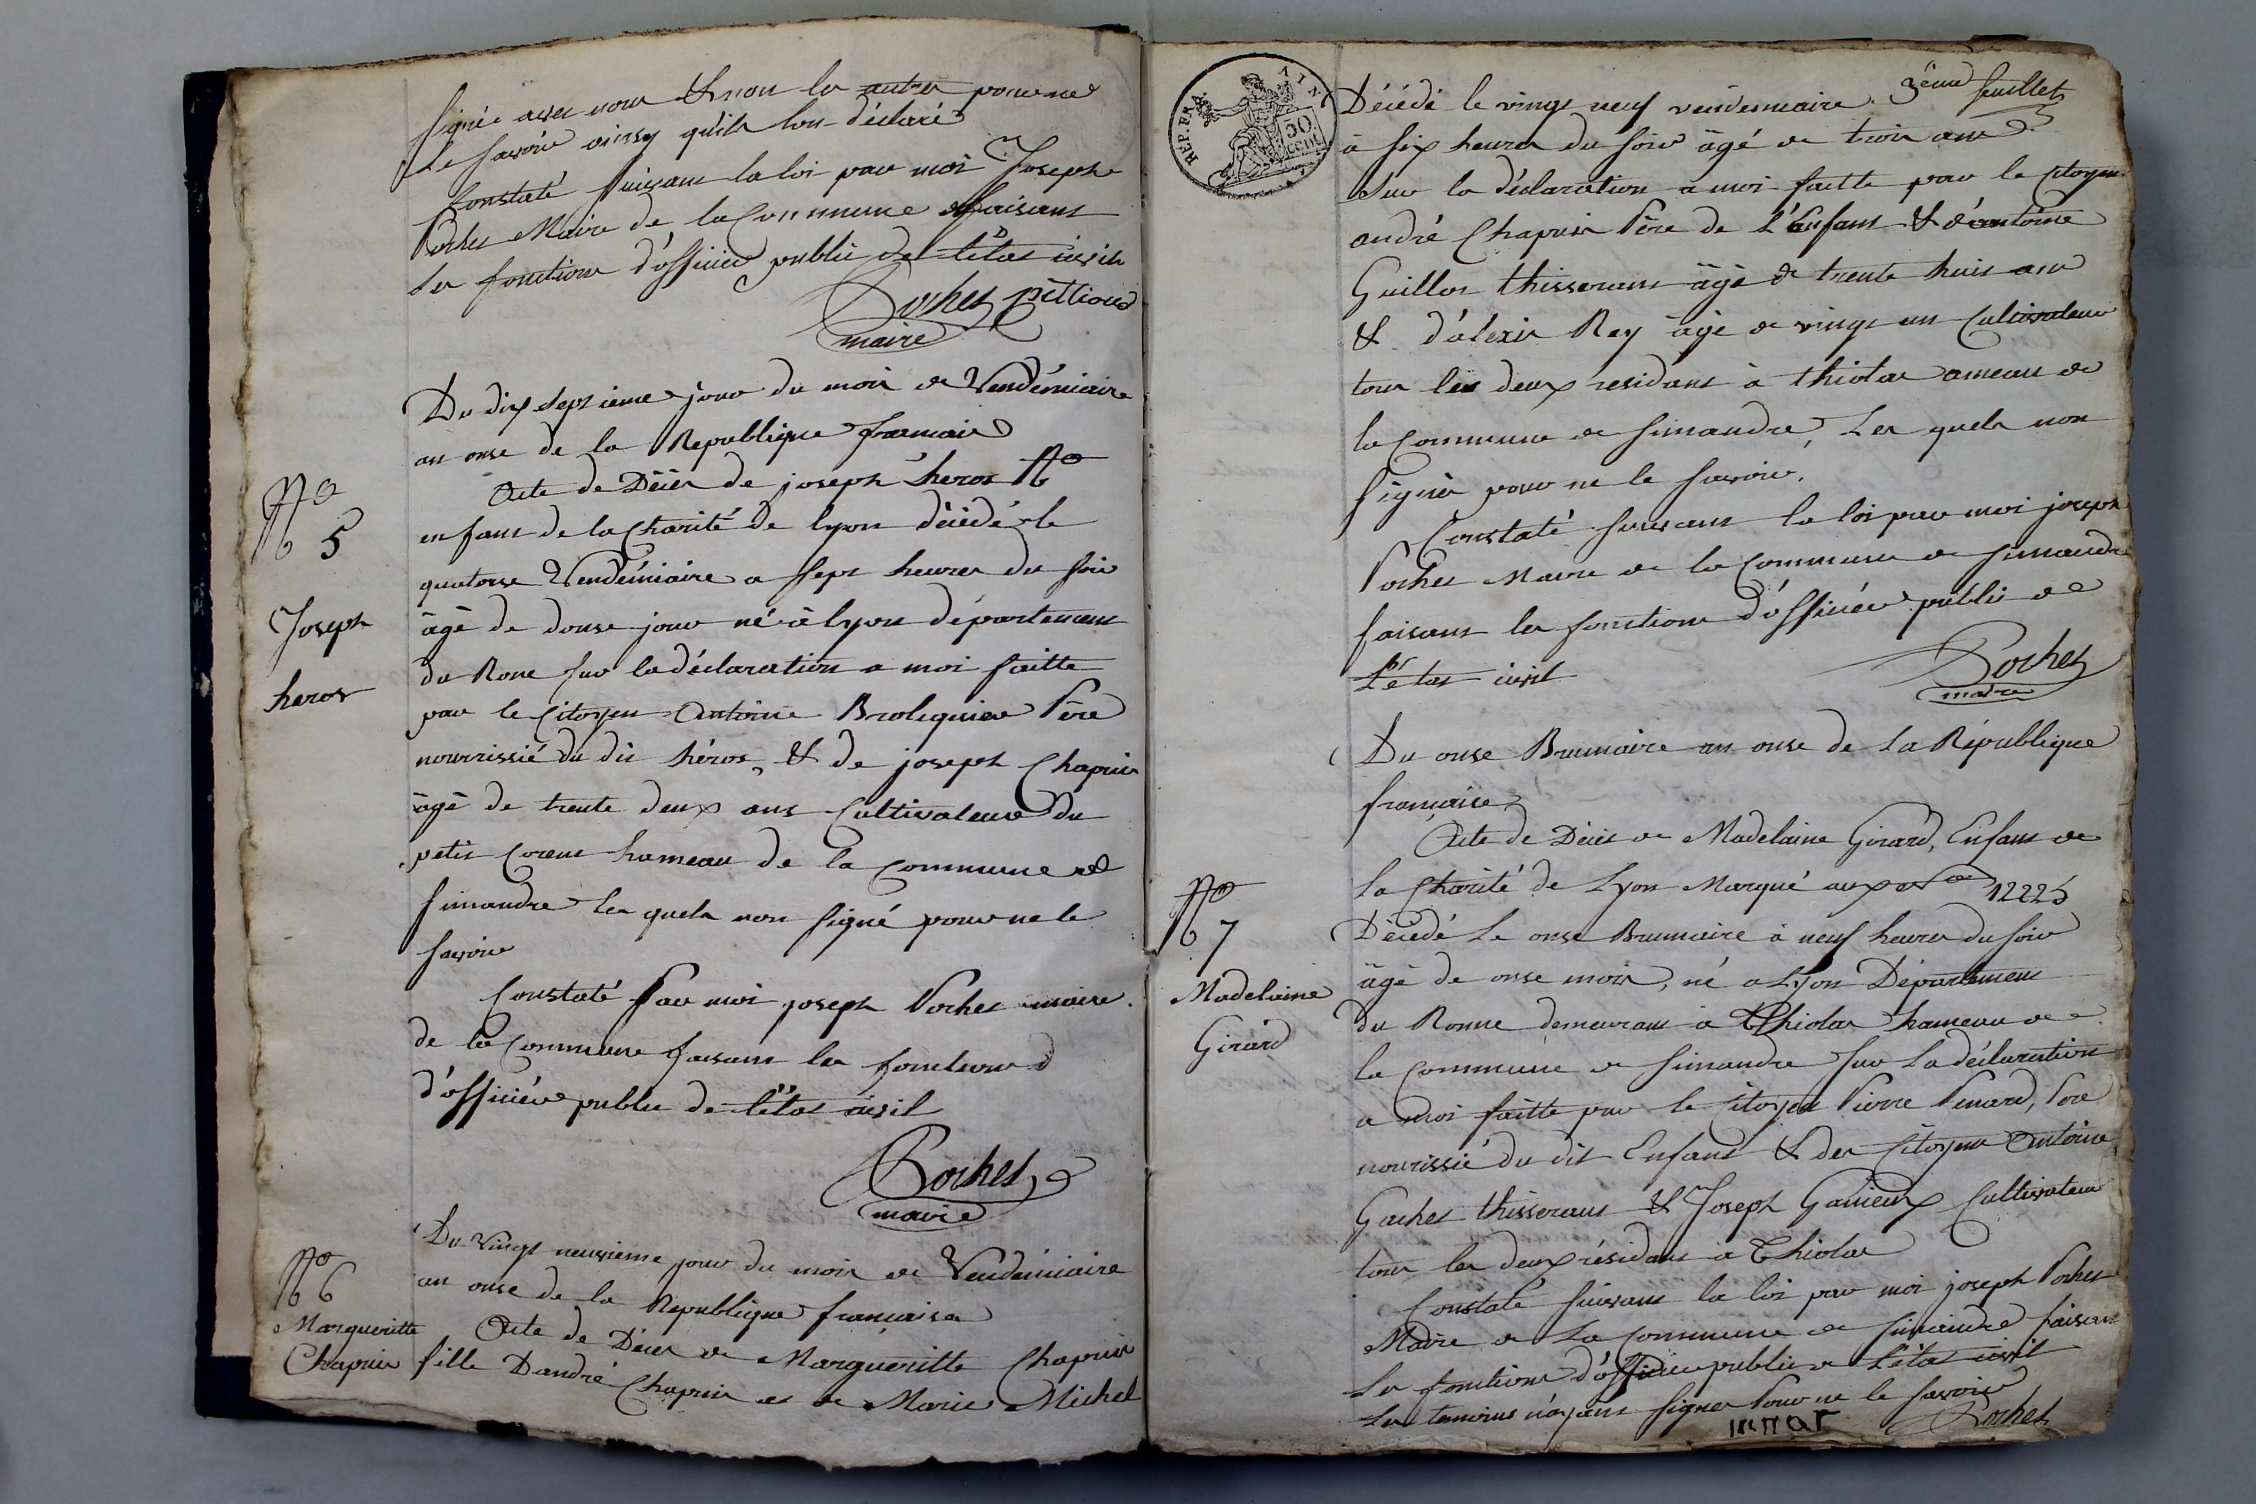 signé avec nous & non les autres pour ne
le savoir ainsy qu'ils l'on déclaré
Constaté suivant la loi par moi Joseph
Pochet Maire de la Commune faisant
les fonctions d'officier public de l'état civile
Pochet pittiond
maire
Du dix septieme jour du mois de Vendémiaire
an onse de la Republique francaise
N° 5
Joseph
heros
Acte de Décès de joseph heros N°
enfant de la Charité de lyon décédé le
quatorse Vendémiaire a sept heures du soir
âgé de douse jour né à lyon département
du Rone sur la déclaration a moi faitte
par le Citoyen Antoine Broliquier Père
nourrissié du dit héros, & de joseph Chapuis
âgé de trente deux ans Cultivateur du
petit Corent hameau de la Commune de
simandre les quels non signé pour ne le
savoir
Constaté Par moi joseph Pochet maire
de la Commune faisant les fonctions
d'officier public de l'état civil
Pochet
maire
Du Vingt neuvieme jour du mois de Vendémiaire
an onse de la Republique francaise
N° 6
Margueritte
Chapuis
Acte de Décès de Margueritte Chapuis
fille D'andré Chapuis et de Marie Michel
REP. FRA. AIN
50
CENT
3eme feuillet
Décédé le vingt neuf vendemiaire
à six heures du soir âgé de trois ans
Sur la déclaration a moi faitte par le Citoyen
andré Chapuis Père de L'Enfant & d'antoine
Guillot thisserant âgé de trente huit ans
& d'alexis Rey âgé de vingt ans Cultivateur
tous les deux residant à thiolas ameau de
la Commune de simandre, Les quels non
signés pour ne le savoir.
Constaté suivant la loi par moi joseph
Pochet Maire de la Commune de simandre
faisant les fonctions d'officier public de
L'état civil
Pochet
maire
Du onse Brumaire an onse de La République
française
N° 7
Madelaine
Girard
Acte de Décès de Madelaine Girard, Enfant de
la Charité de Lyon Marqué aux N° 12225
Décédé Le onse Brumaire à neuf heures du soir
âgé de onse mois, né a Lyon Département
du Ronne demeurant à Thiolas hameau de
la Commune de simandre sur La déclaration
a moi faitte par le Citoyen Pierre Penard, Pere
nourissié du dit Enfant & des Citoyens Antoine
Gachet thisserant & Joseph Gavieux Cultivateur
tous les deux résidant à Thiolas
Constaté suivant la loi par moi joseph Pochet
Maire de La Commune de simandre faisant
les fonctions d'officier public de L'état civil
Les temoins n'ayant signer Pour ne le savoir
Pochet